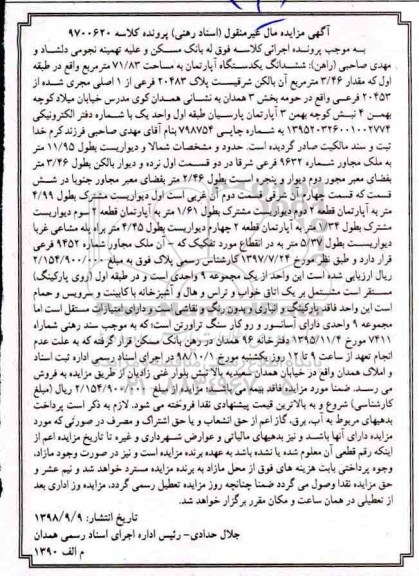 آگهی مزایده مال غیرمنقول (اسناد رهنی) پرونده کلاسه ۹۷۰۰۶۲۰
به موجب پرونده اجرائی کلاسه فوق له بانک مسکن و علیه تهمینه نجومی دلشاد و
مهدی صاحبی (راهن): ششدانگ یکدستگاه آپارتمان به مساحت ۷۱/۸۳ مترمربع واقع در طبقه
اول که مقدار ۳/۴۶ مترمربع آن بالکن شرقیست پلاک ۲۰۴۸۳ فرعی از ۱ اصلی مجزی شده از
۲۰۴۵۳ فرعی واقع در حومه بخش ۳ همدان به نشانی همدان کوی مدرس خیابان میلاد کوچه
بهمن ۴ نبش کوچه بهمن ۳ آپارتمان پارسیان طبقه اول واحد یک با شماره دفتر الکترونیکی
۱۳۹۵۲۰۳۲۶۰۰۱۰۰۲۷۷۴ به شماره چاپی ۷۹۸۷۵۴ بنام آقای مهدی صاحبی فرزند کرم خدا
ثبت و سند مالکیت صادر گردیده است. حدود و مشخصات شمالا و دیواریست بطول ۱۱/۹۵ متر
به ملک مجاور شماره ۹۶۳۲ فرعی شرقا در دو قسمت اول نرده و دیوار بالکن بطول ۳/۴۶ متر
بفضای معبر مجاور دوم دیوار و پنجره است بطول ۲/۴۶ متر بفضای معبر مجاور جنوبا در شش
قسمت که قسمت چهارم آن شرقی قسمت دوم آن غربی است اول دیواریست مشترک بطول ۴/۹۹
متر به آپارتمان قطعه ۲ دوم دیواریست مشترک بطول ۱/۶۱ متر به آپارتمان قطعه ۲ سوم دیواریست
مشترک بطول ۱/۳۴ متر به آپارتمان قطعه ۲ چهارم دیواریست بطول ۴/۴۵ متر براه پله مشاعی غربا
دیواریست بطول ۵/۳۷ متر به انقطاع مورد تفکیک که - آن ملک مجاور شماره ۹۴۵۲ فرعی
قرار دارد و طبق نظر مورخ ۱۳۹۷/۷/۲۴ کارشناس رسمی پلاک فوق به مبلغ ۲/۱۵۴/۹۰۰/۰۰۰
ریال ارزیابی شده این واحد از یک مجموعه ۹ واحدی است و در طبقه اول (روی پارکینگ)
مستقر است مشتمل بر یک اتاق خواب و تراس و هال و آشپزخانه با کابینت و سرویس و حمام
است این واحد فاقد پارکینگ و انباری و بدون رنگ و نقاشی است و دارای امتیازات مستقل است اما
مجموعه ۹ واحدی دارای آسانسور و رو کار سنگ تراورتن است؛ که به موجب سند رهنی شماره
۷۴۱۱ مورخ ۱۳۹۵/۱۱/۴ دفترخانه ۹۶ همدان در رهن بانک مسکن قرار گرفته که به علت عدم
انجام تعهد از ساعت ۹ تا ۱۲ روز یکشنبه مورخ ۹۸/۱۰/۱ در اجرای اسناد رسمی اداره ثبت اسناد
و املاک همدان واقع در خیابان همدان سعیدیه بالا نبش بلوار غنی زادیان از طریق مزایده به فروش
می رسد. ضمنا مورد مزایده فاقد بیمه می باشد؛ مزایده از مبلغ ۲/۱۵۴/۹۰۰/۰۰۰ ریال (مبلغ
کارشناسی) شروع و به بالاترین قیمت پیشنهادی نقدا فروخته می شود. لازم به ذکر است پرداخت
بدهیهای مربوط به آب، برق، گاز اعم از حق انشعاب و یا حق اشتراک و مصرف در صورتی که مورد
مزایده دارای آنها باشد و نیز بدهیهای مالیاتی و عوارض شهرداری و غیره تا تاریخ مزایده اعم از
اینکه رقم قطعی آن معلوم شده یا نشده باشد به عهده برنده مزایده است و نیز در صورت وجود مازاد،
وجوه پرداختی بابت هزینه های فوق از محل مازاد به برنده مزایده مسترد خواهد شد و نیم عشر و
حق مزایده نقدا وصول می گردد ضمنا چنانچه روز مزایده تعطیل رسمی گردد، مزایده روز اداری بعد
از تعطیلی در همان ساعت و مکان مقرر برگزار خواهد شد.
تاریخ انتشار: ۱۳۹۸/۹/۹
جلال حدادی- رئیس اداره اجرای اسناد رسمی همدان
م الف ۱۳۹۰